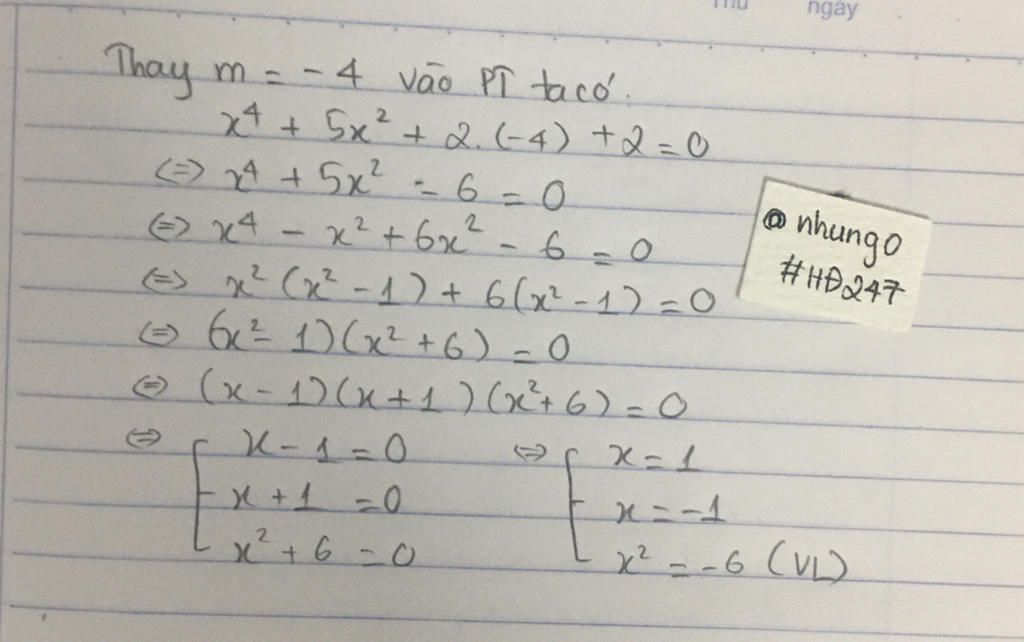 Thu ngày
Thay m = -4 vào PT ta có:
x⁴ + 5x² + 2.(-4) + 2 = 0
⇔ x⁴ + 5x² - 6 = 0
⇔ x⁴ - x² + 6x² - 6 = 0
⇔ x²(x² - 1) + 6(x² - 1) = 0
⇔ (x² - 1)(x² + 6) = 0
⇔ (x - 1)(x + 1)(x² + 6) = 0
⇔ [ x - 1 = 0 ⇔ [ x = 1
x + 1 = 0 x = -1
x² + 6 = 0 x² = -6 (VL)
@nhung0
#HĐ247